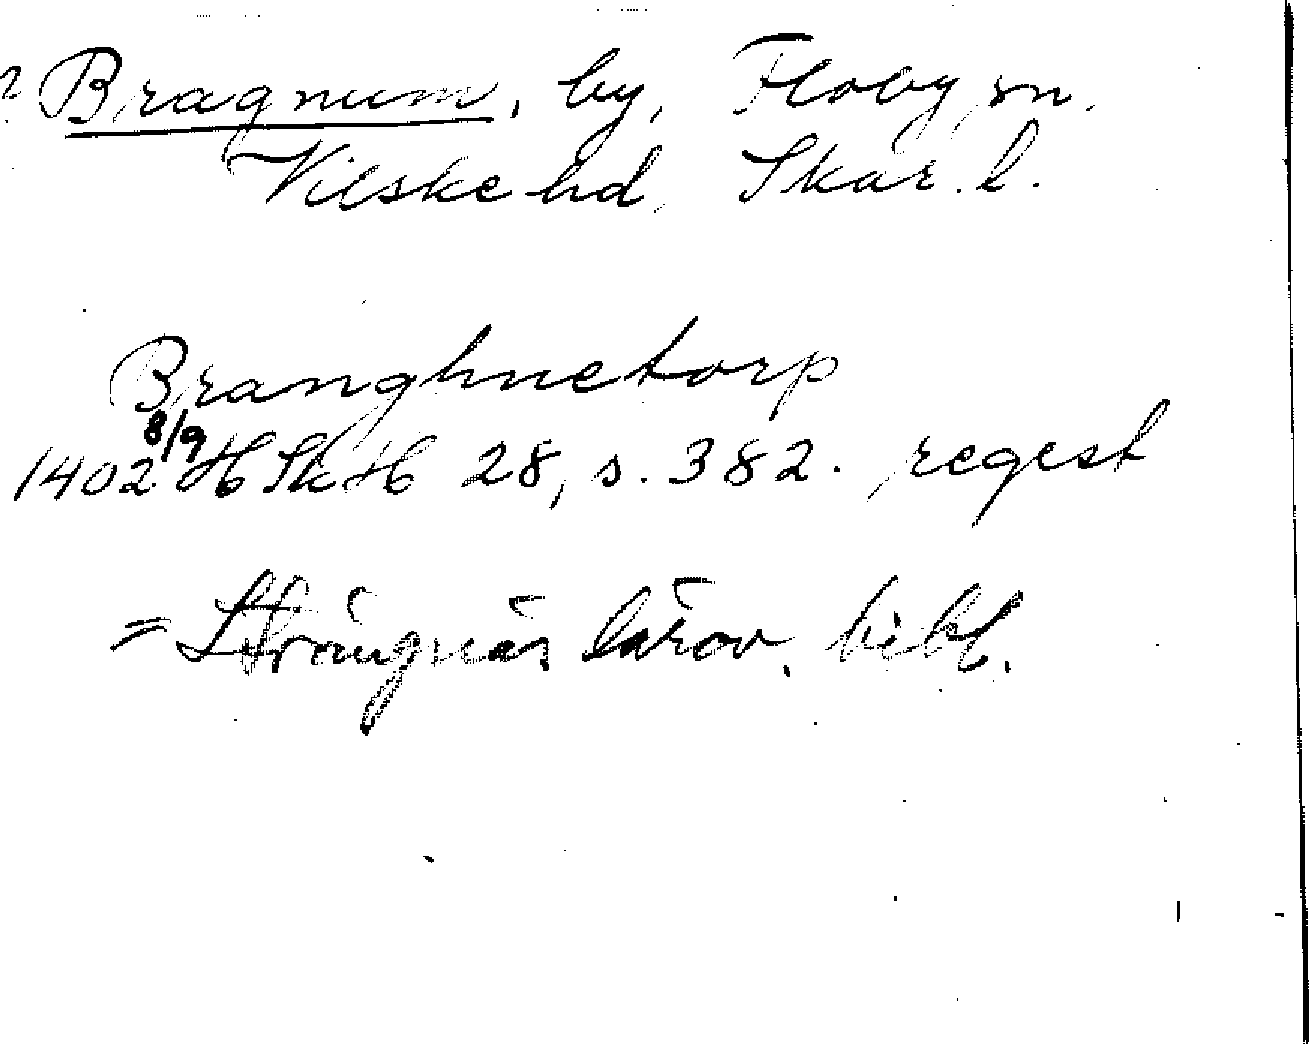 ? Bragnum, by, Floby sn.
Vilske hd, Skar. l.
Branghnetorp
1402 8/9 HSkH 28, s. 382. regest
= Strängnäs lärov. bibl.